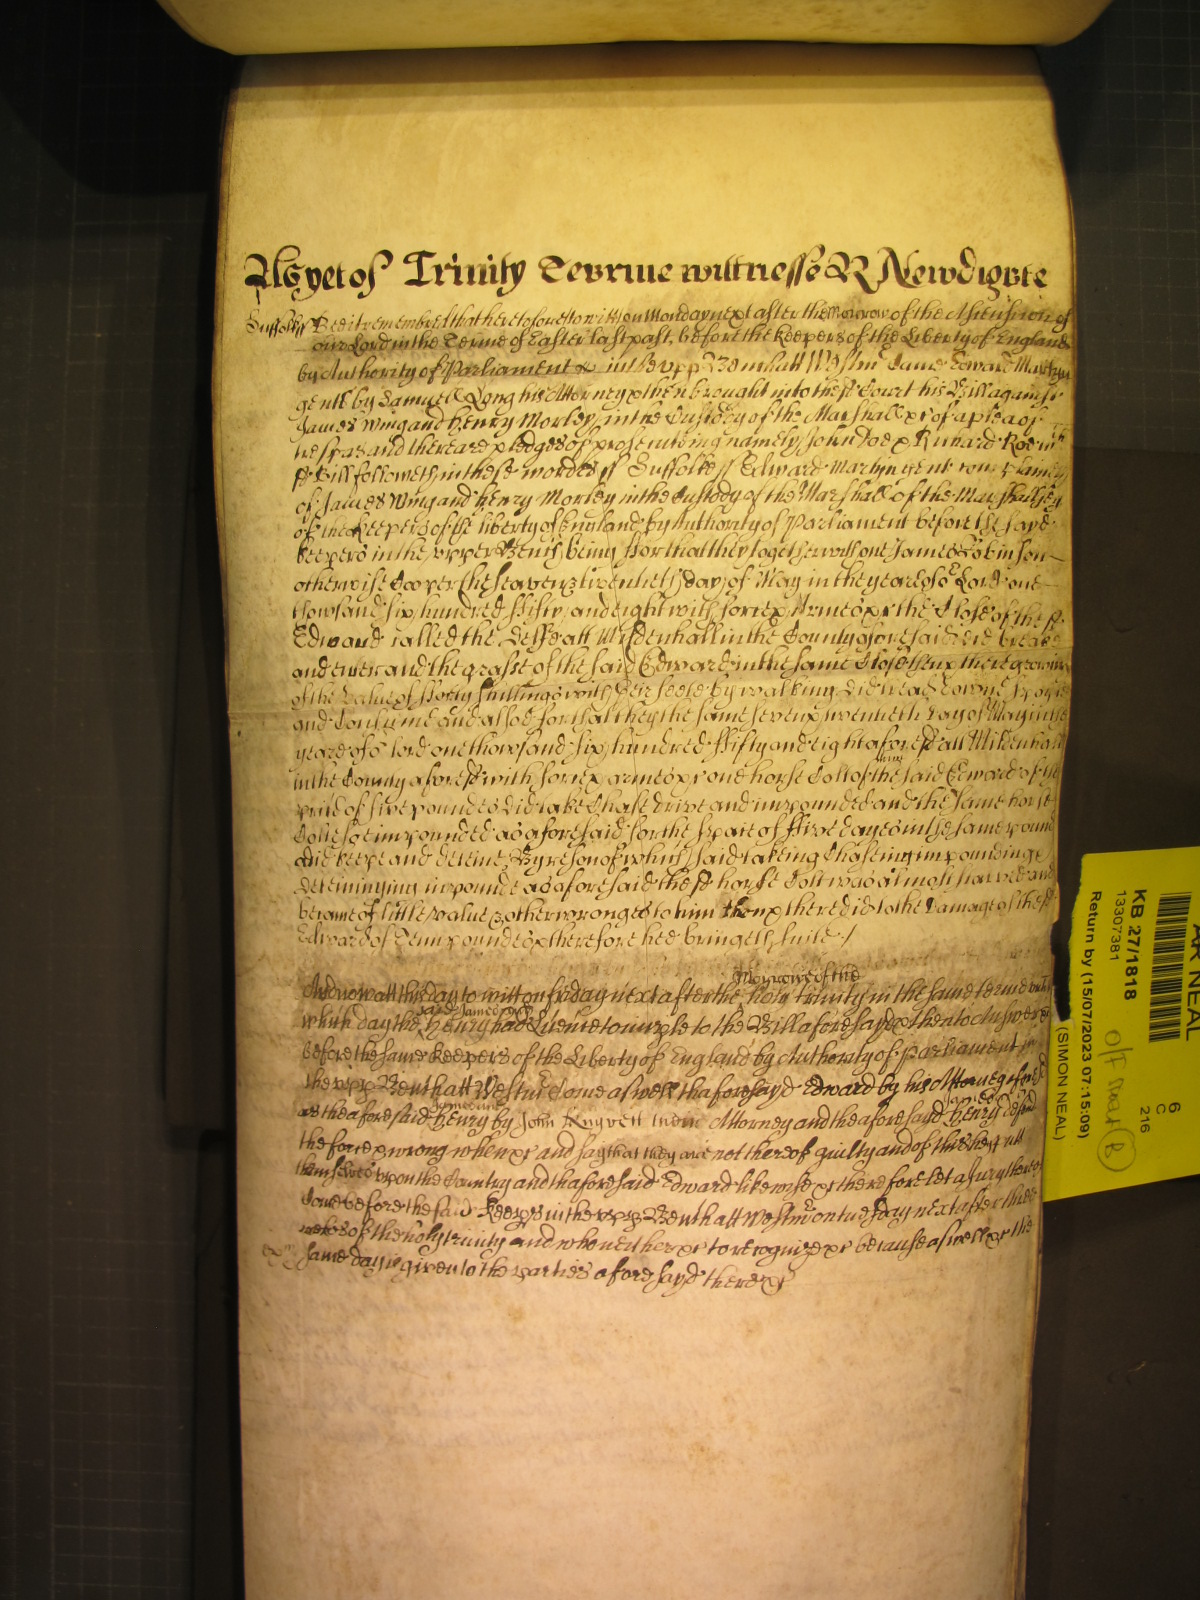 As yet of Trinity Terme wittnesse R Newdigate
Suffolk ss Be it remembred that heretofore to witt on Monday next after the Morrow of the Ascension of
our Lord in the Terme of Easter last past, before the keepers of the Liberty of England
by Authority of Parliament &c in the upp Bench att Westmr Came Edward Martyn
gent by Samuell Long his Attorney & then brought into the sd Court his Bill against
James Wing and Henry Morley in the Custody of the Marshall &c of a plea of
trespas and there are pledges of prosecuting namely John Doe & Richard Roe wch
sd Bill followeth in these wordes ss Suffolke ss Edward Martyn gent complaines
of James Wing and Henry Morley in the Custody of the Marshall of the Marshallsey
of the keepers of the liberty of England by Authority of Parliament before the sayd
keepers in the upper Bench being ffor that they together with one James Robinson
otherwise Cooper the seaven & twentieth day of May in the yeare of or Lord one
thowsand six hundred ffifty and eight with force & Armes &c the Close of the sd
Edward called the Delfe att Mildenhall in the County aforesaid did breake
and enter and the grasse of the said Edward in the same Close then & there growing
of the value of fforty shillings with their feete by walking did tread downe spoyle
and Consume and alsoe for that they the same seven & twentieth day of May in the
yeare of or lord one thowsand six hundred ffifty and eight aforesd att Mildenhall
in the County aforesd with force & armes &c one horse Colt of the said Edward of the
price of five poundes did take Chase drive and impounded and the same horse
Colte soe impounded as aforesaid for the space of ffive dayes in the same pound
did keepe and deteine, By reson of which said takeing Chaseing impounding &
deteininging in pounde as aforesaid the sd horse Colt was almost starved and
became of little value & other wronges to him then & there did to the Damage of the sd
Edward of Tenn poundes & therefore hee bringeth suite /
Morrow of the
And now att this day to witt on friday next after the holy trinity in the same terme untill
said James and
which day the Henry had Licence to imple to the Bill aforesayd & then to Answere &c
before the same keepers of the Liberty of England by Authority of Parliament in
the upp Bench att Westmr Come aswell thaforesayd Edward by his Attorney aforesd
James and
James &
as the aforesaid Henry by John their Attorney and the aforesayd Henry defend
the force & wrong when &c and say that they are not thereof guilty and of this they putt
themselves upon the Country and thaforesaid Edward likewise &c therefore let a Jury thereof
Come before the said keepers in the upp Bench att Westmr on tuesday next after three
weekes of the holy trinity and who neither &c to recognize &c because aswell &c the
same day is given to the parties aforesayd there &c
AR NEAL
KB 27/1818
13307381
Return by (15/07/2023 07:15:09)
(SIMON NEAL)
6
C
216